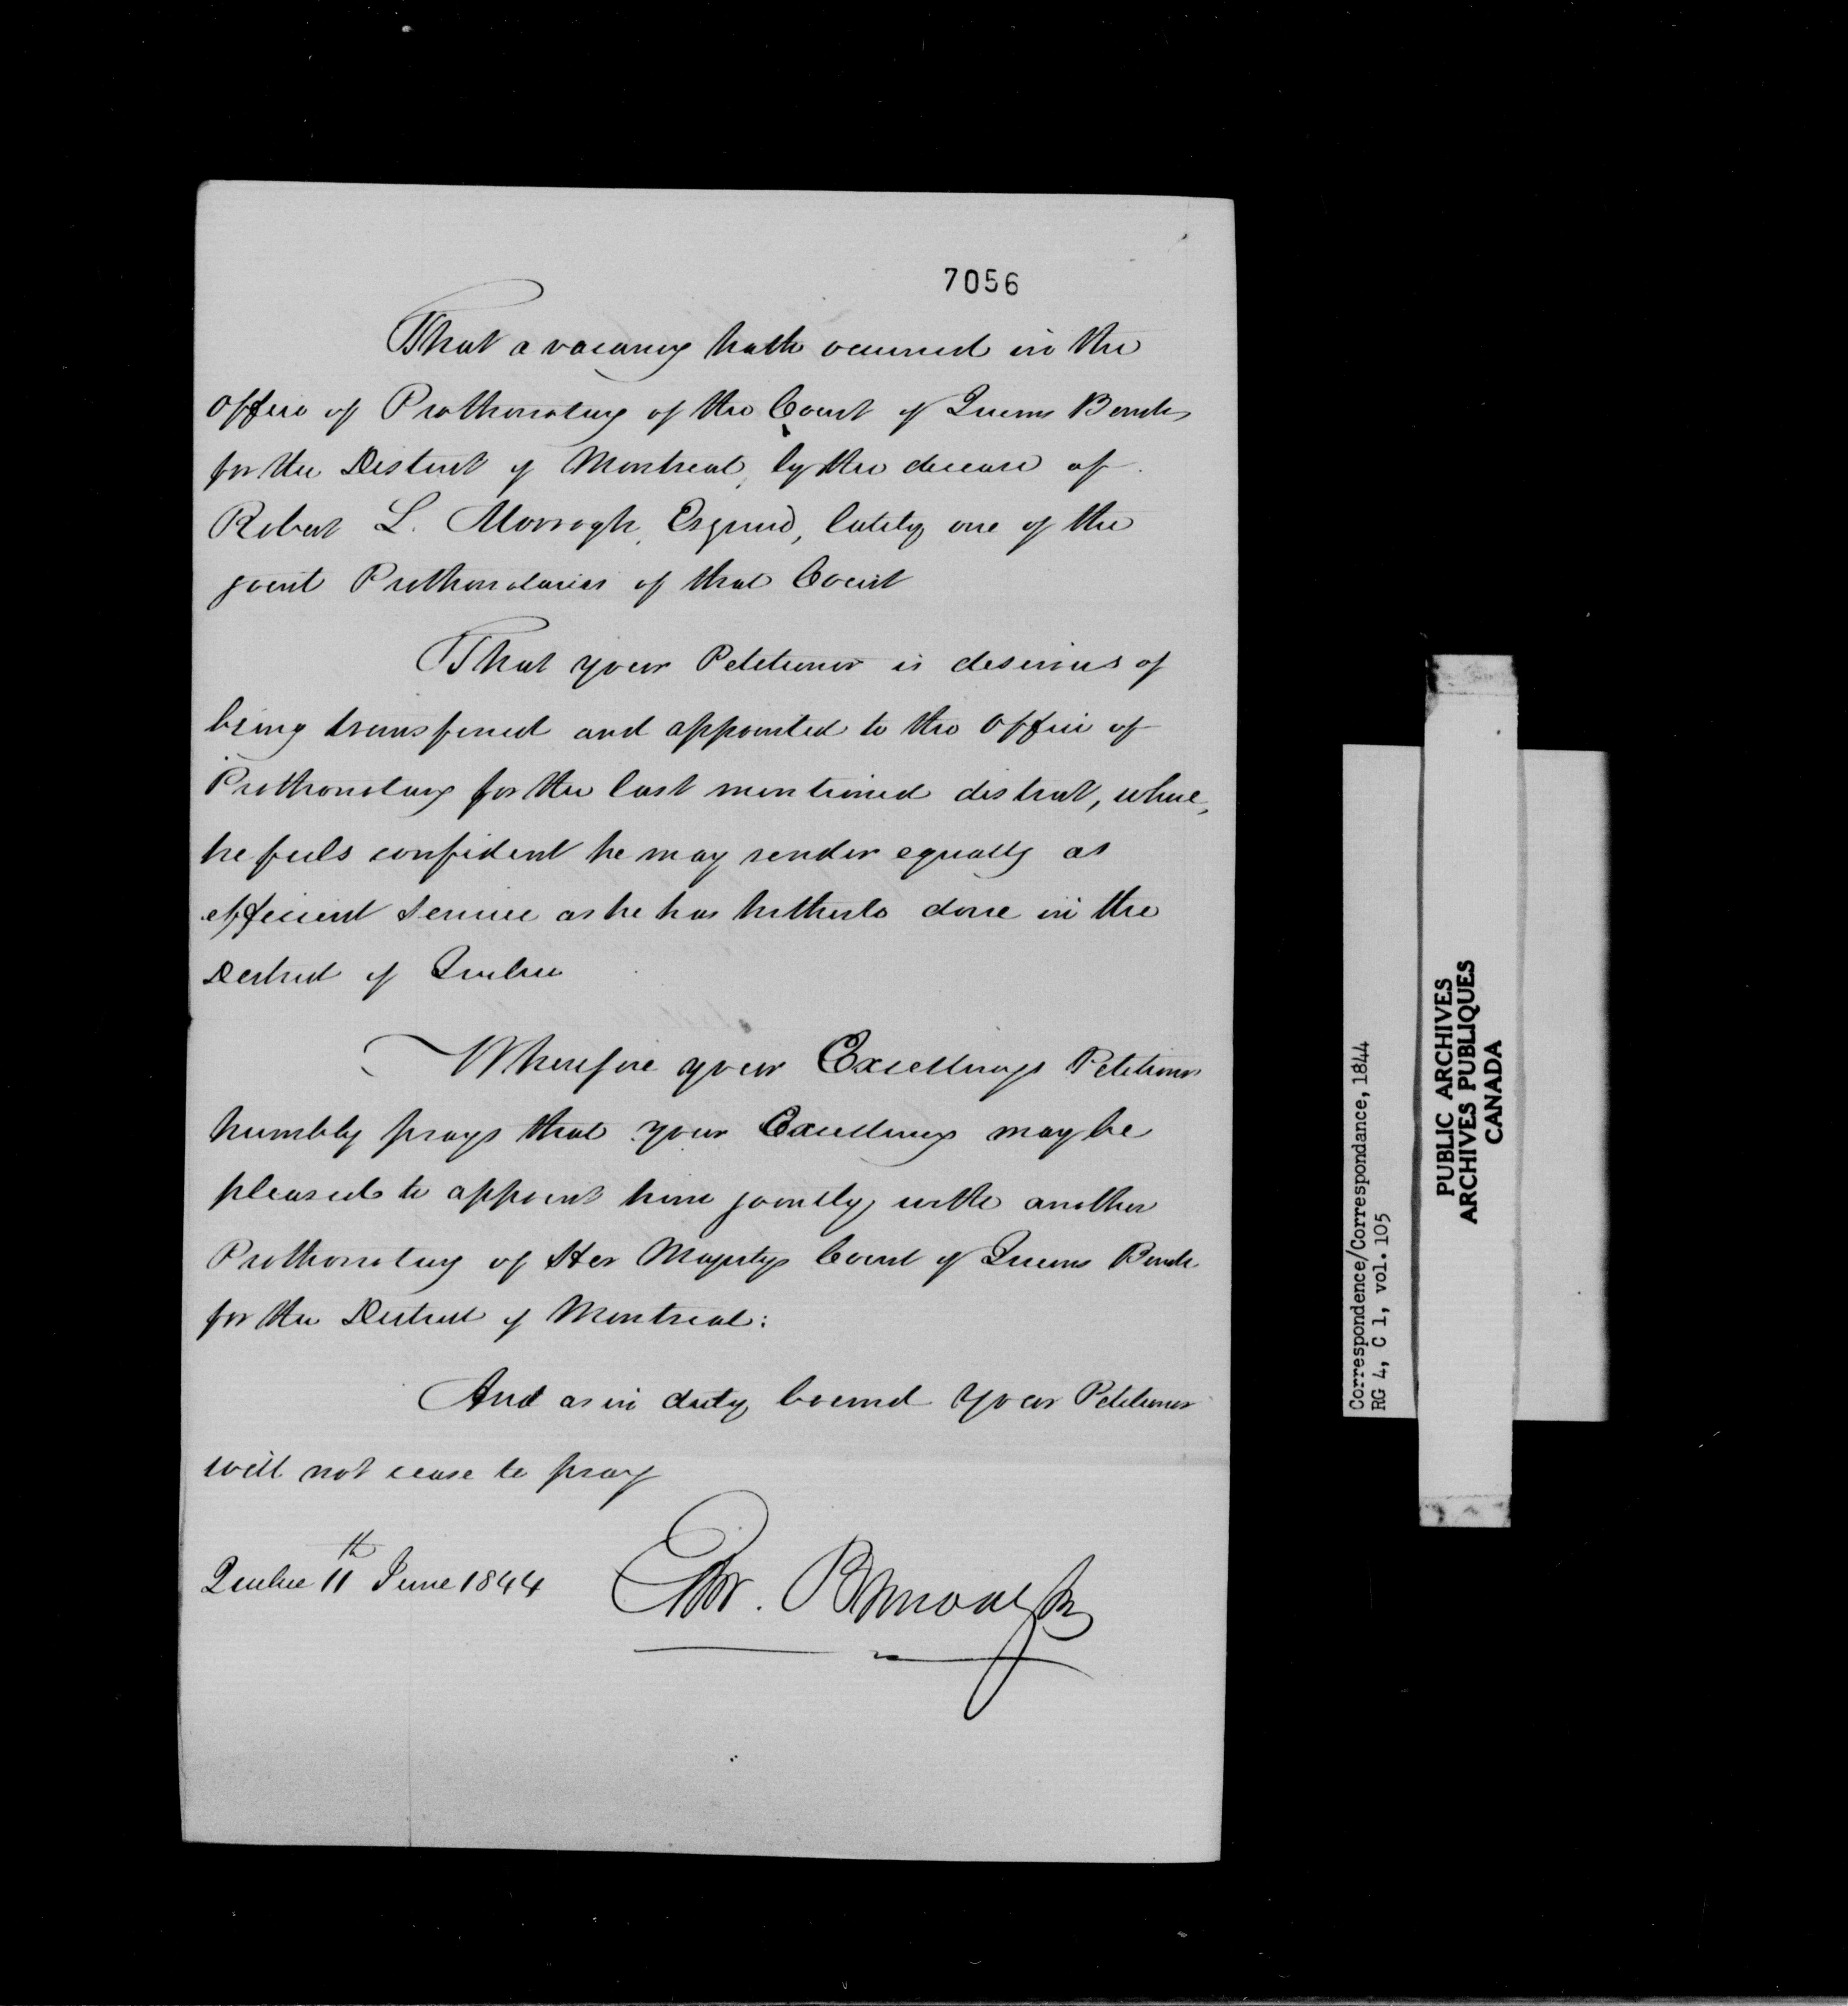 7056
That a vacancy hath occurred in the
Office of Prothonotary of the Court of Queens Bench
for the District of Montreal, by the decease of
Robert L. Morrogh, Esquire, lately one of the
joint Prothonotaries of that Court
That your Petitioner is desirous of
being transferred and appointed to the Office of
Prothonotary for the last mentioned district, where,
he feels confident he may render equally as
efficient service as he has hitherto done in the
District of Quebec
Wherefore your Excellencys Petitioner
humbly prays that your Excellency may be
pleased to appoint him jointly with another
Prothonotary of Her Majestys Court of Queens Bench
for the District of Montreal:
And as in duty bound your Petitioner
will not cease to pray
Quebec 11th June 1844
Correspondence/Correspondance, 1844
RG 4, C 1, vol. 105
PUBLIC ARCHIVES
ARCHIVES PUBLIQUES
CANADA